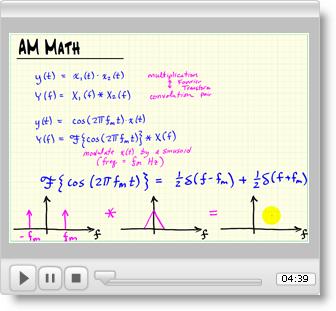 AM MATH
y(t) = x₁(t)·x₂(t) multiplication
Fourier
Transform
Y(f) = X₁(f) * X₂(f) convolution pair
y(t) = cos(2πfₘt)·x(t)
Y(f) = ℱ{cos(2πfₘt)} * X(f)
modulate x(t) by a sinusoid
(freq = fₘ Hz)
ℱ{cos(2πfₘt)} = ½δ(f-fₘ) + ½δ(f+fₘ)
* =
-fₘ fₘ f f f
04:39